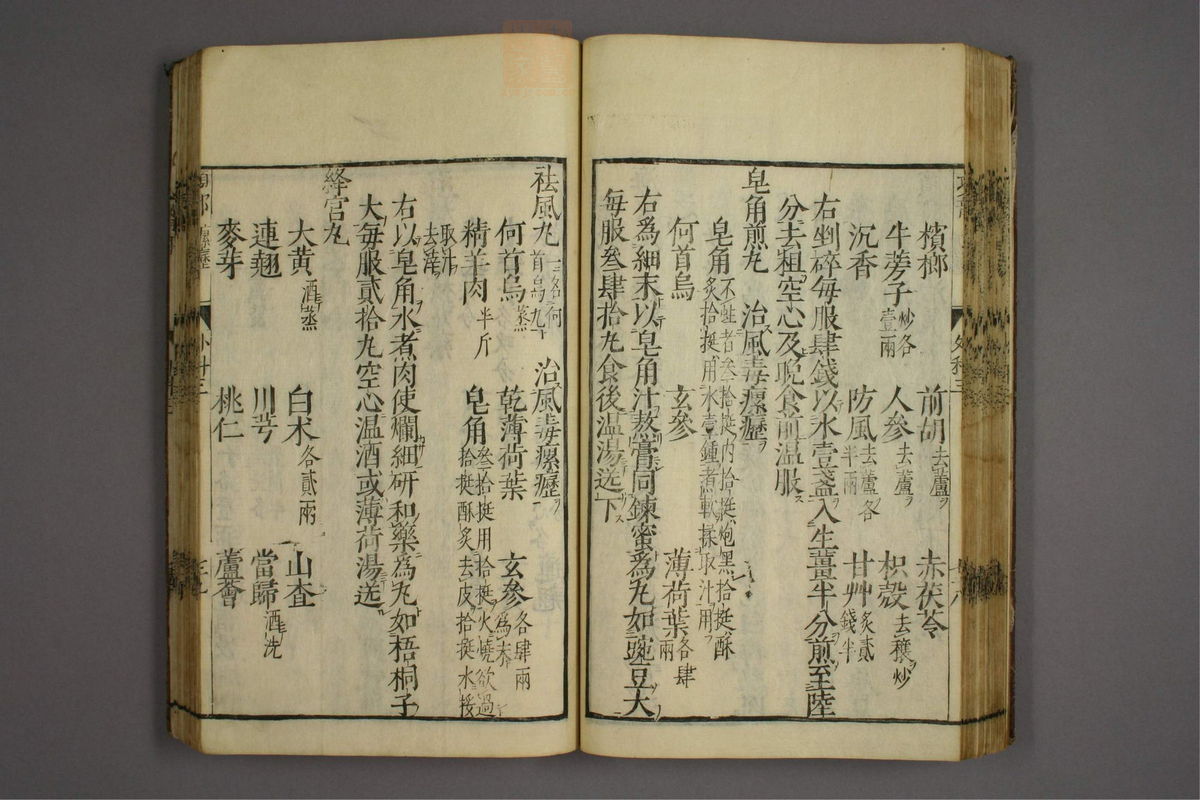 檳榔 前胡去蘆 赤茯苓
牛蒡子炒各壹兩 人參去蘆 枳殼去穰炒
沉香 防風去蘆各半兩 甘艸炙貳錢半
右剉碎每服肆錢以水壹盞入生薑半分煎至陸
分去粗空心及晩食前温服
皂角煎丸 治風毒瘰癧
皂角不蛀者叁拾挺內拾挺炮黑拾挺酥炙拾挺用水壹鍾煮軟揉取汁用
何首烏 玄參 薄荷葉各肆兩
右爲細末以皂角汁熬膏同鍊蜜爲丸如豌豆大
每服叁肆拾丸食後温湯送下
祛風丸一名何首烏丸 治風毒瘰癧
何首烏蒸 乾薄荷葉 玄參各肆兩爲末
精羊肉半斤 皂角叁拾挺用拾挺火燒欲過拾挺酥炙去皮拾挺水挼
取汁去滓
右以皂角水煮肉使爛細研和藥爲丸如梧桐子
大每服貳拾丸空心温酒或薄荷湯送
絳宮丸
大黃酒蒸 白朮各貳兩 山査
連翹 川芎 當歸酒洗
麥芽 桃仁 蘆薈